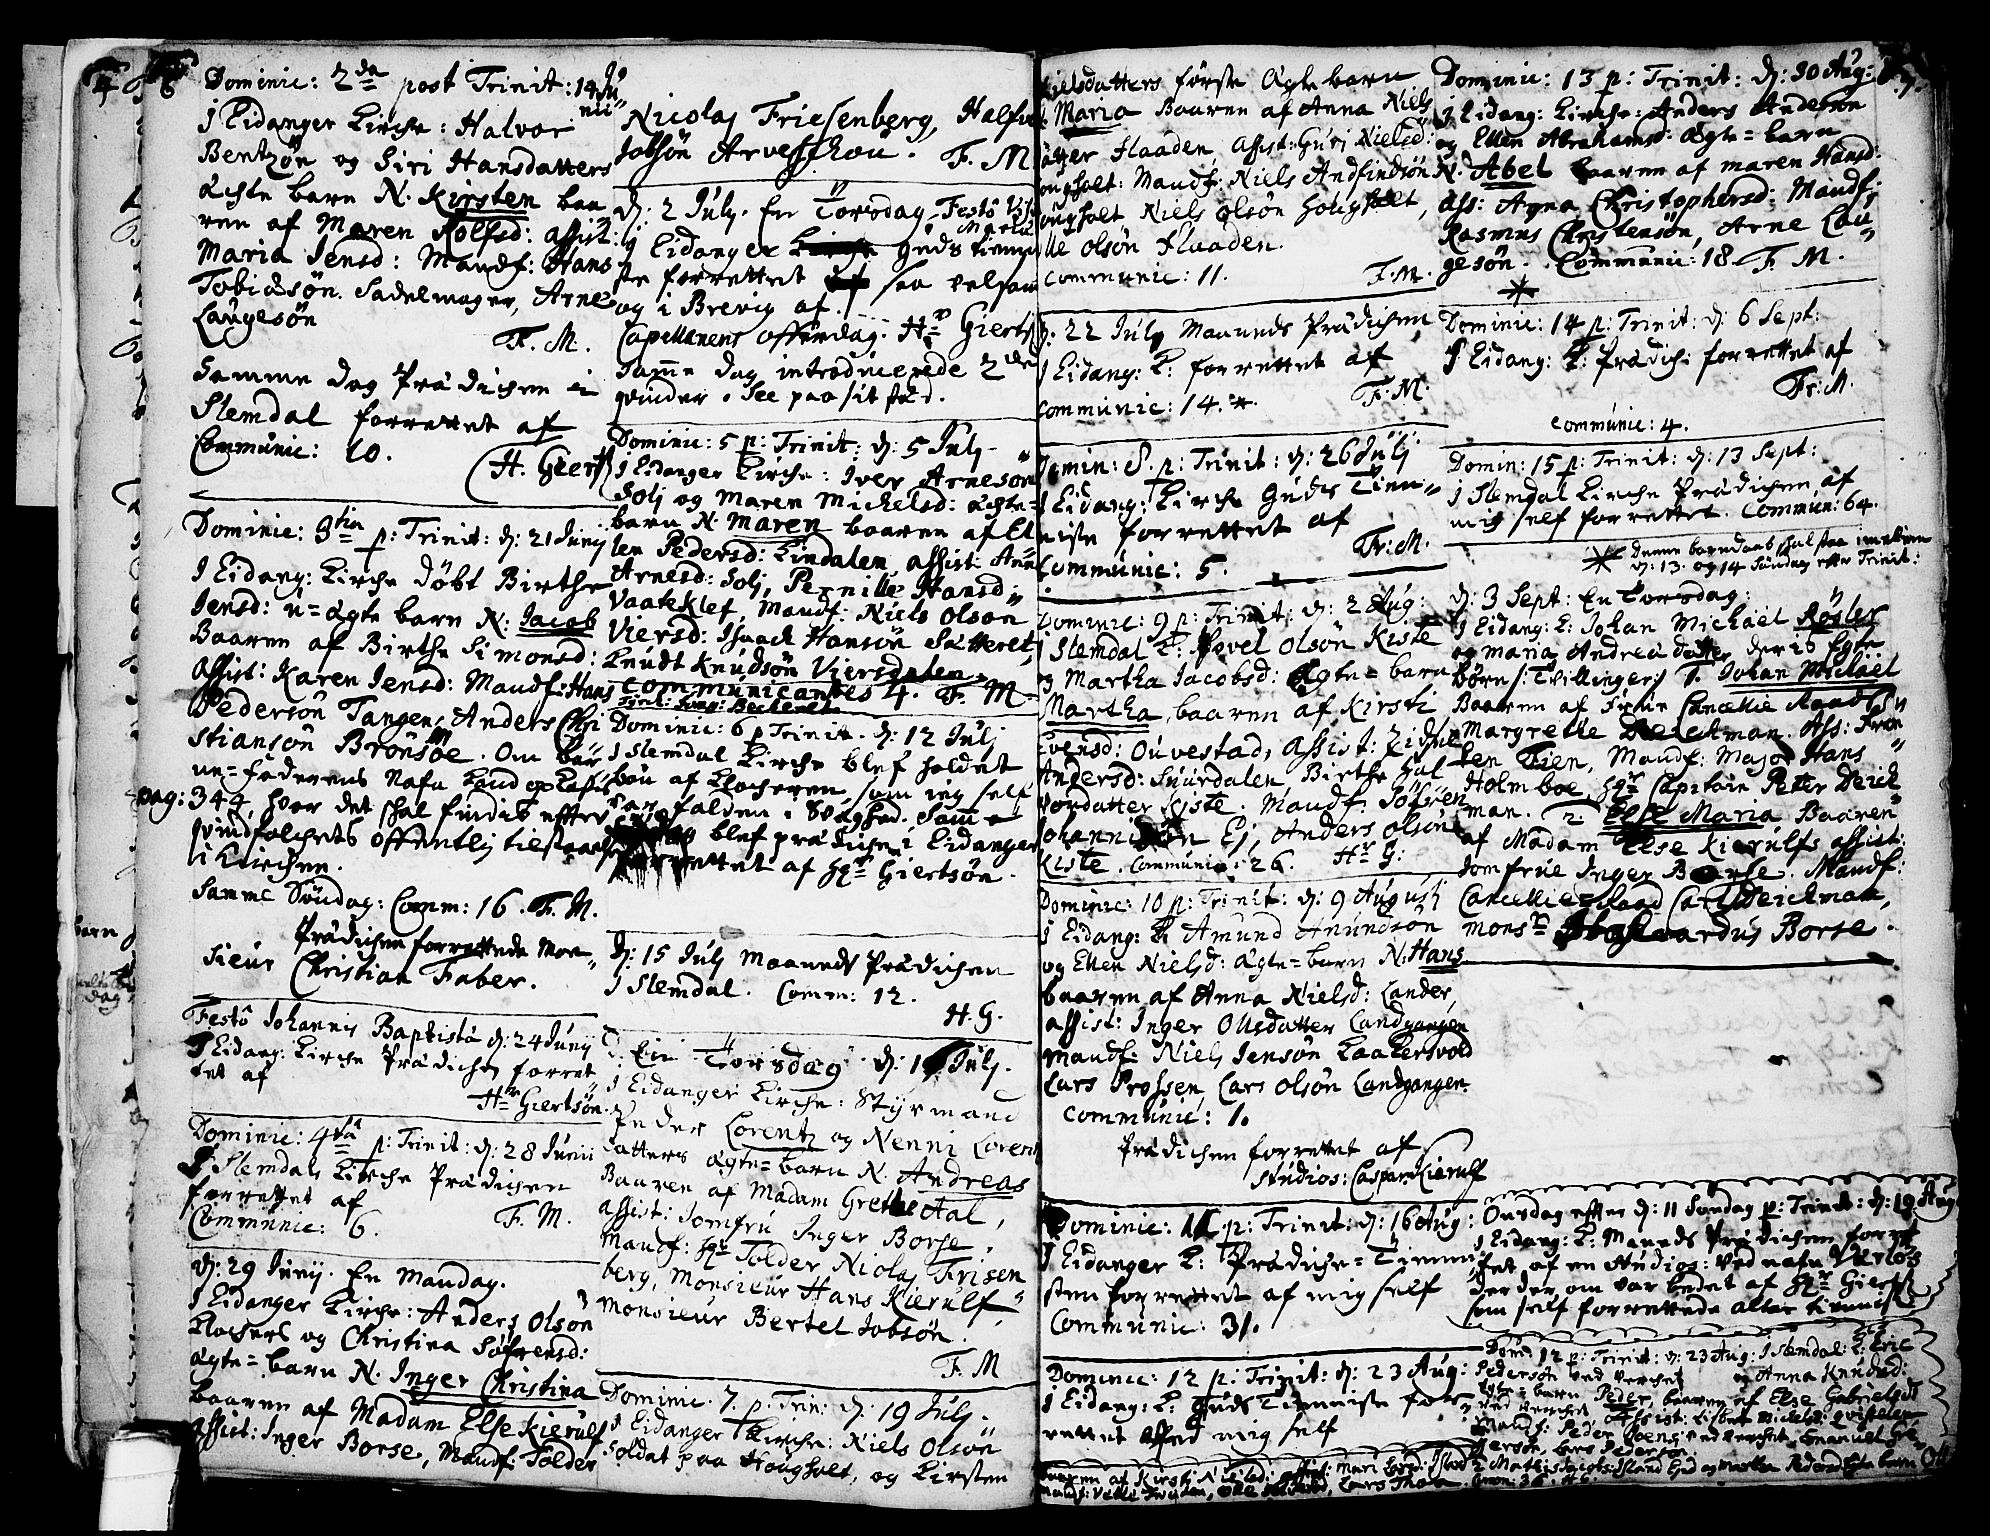 Dominic: 2da post Trinit: 14 Ju
nii
J Eidanger Kirche: Halvor
Bentzön og Siri Hansdatters
ächte barn N. Kirsten baa
ren af Maren Rolfsd: assist:
Maria Jensd: Maudf: Hans
Tobiasön Sadelmager, Arne
Laugesön
F. M.
Samme dag Prædichen i
Slemdal forrettet af
Communic: 10.
H. Giertz
Dominic: 3tia p: Trinit: d: 21 Junij
J Eidang: Kirche döbt Birthe
Jensd: u=ägte barn N: Jacob
Baaren af Birthe Simonsd:
assist: Karen Jensd: Maudf: Hans
Pedersön Tangen, Anders Chri
stiansön Brönsöe. Om bar
ne=faderens Nafn
pag: 344, hvor det skal findis efter
qvindfolchets offentlig tilstaaelse
i Kirchen.
Samme Söndag: Comm: 16. F. M.
Prædichen forrettede Mon
sieur Christian Faber.
Festo Johannis Baptistæ d: 24 Junij
J Eidang: Kirche Prædichen forret
tet af
Hr Giertsön.
Dominic: 4ta p: Trinit: d: 28 Junii
J Slemdals Kirche Prædichen
forrettet af
Communic: 6. F. M.
d: 29 Junij. En Mandag.
J Eidanger Kirche: Anders Olson
Klochers og Christina Söfrensd:
ägte=barn N. Inger Christina
baaren af Madam Else Kierulf
Assist: Inger Borse, Maudf: Tolder
Nicolaj Friesenberg, Halfvor
Jobsön Arveschou. F. M
d: 2 July. En Torsdag Festo Visit
Mariæ
J Eidanger Kirche Guds tienne
ste forrettet af saa velsom
og i Brevig af
Capellanens offerdag. Hr Giertz
Samme dag introducerede 2de
qvinder. See paa sit sted.
Dominic: 5 p: Trinit: d: 5 July
J Eidanger Kirche: Iver Arnesön
Solj og Maren Michelsd: ächte=
barn N. Maren baaren af El
len Pedersd: Lindalen, assist: Ann
Arnesd: Solj, Pernille Hansd:
Vaateklef, Maudf: Niels Olson
Viersd: Isaach Hansön Sætteret,
Knudt Knudsön Viersdalen.
Communicantes 4. F. M
Dominic: 6 p Trinit. d: 12 Julj
J Slemdal Kirche blef holdet
bön af Klocheren, som jeg self
var falden i Svaghed. Samme
dag blef prædichen i Eidanger
forrettet af Hr Giertsön.
D: 15 July Maaneds Prædichen
J Slemdal. Comm: 12.
H. G.
En Torsdag d: 16 Julj.
J Eidanger Kirche: Styrmand
Peder Lorentz og Nenni Lorentz
datters ägte=barn N. Andreas
Baaren af Madam Grethe Aal,
assist: Jomfru Inger Borse,
Maudf: Hr Tolder Niolaj Frisen
berg, Monsieur Hans Kierulf,
Monsieur Bertel Jobsön.
F. M
Dominic. 7. p: Trin: d: 19 Julj.
J Eidanger Kirche: Niels Olsön
Soldat paa Hougholt, og Kirsten
Nielsdatters förste Ägte barn
N: Maria Baaren af Anna Niels
datter Flaaden, Assist: Guri Nielsd:
Hougholt: Maudf: Niels Andfindsön
Hougholt Niels Olsön Hougholt,
Olle Olsön Flaaden.
Communic: 11. F. M.
d: 22 July Maaneds Prædichen
J Eidang: K: forrettet af
Communic: 14. F. M.
Domin: 8. p: Trinit: d: 26 Julj
J Eidang: Kirche Guds Tien
niste forrettet af
Communic: 5. Fr: M.
Dominic: 9 p: Trinit: d: 2 Aug:
J Slemdal K: Povel Olsön Kiste
og Martha Jacobsd: ägte=barn
Martha, baaren af Kirsti
Evensd: Ouvestad, Assist: Zidsel
Andersd: Snurdalen Birthe Hal
vordatter Kiste. Maudf: Söfren
Johannisön Ej, Anders Olsön
Kiste. Communic: 26. Hr G:
Dominic: 10 p: Trinit: d: 9 Augustj
J Eidang: K: Amund Anundsön
og Ellen Nielsd: ägte=barn N: Hans
baaren af Anna Nielsd: Lander,
assist: Inger Ollsdatter Landgangen
Maudf: Niels Jensön Laakersvold
Lars Prossen, Lars Olsön Landgangen.
Communic: 1.
Prædichen forrettet af
Studios: Caspar Kierulf
Dominic: 11 p: Trinit: d: 16 Aug:
J Eidanger K: Prædiche=Tienni
sten forrettet af mig self
Communic: 31.
Dominic: 12 p: Trinit: d: 23 Aug:
J Eidang: K: Guds Tienniste for
rettet af mig self
Dominic: 13 p: Trinit: d: 30 Aug:
J Eidang: Kirche: Anders Andersen
og Ellen Abrahamsd: ägte=barn
N. Abel baaren af Maren Hansd:
Ass: Anna Christophersd: Maudf:
Rasmus Christensön, Arne Lau
gesön. Communic: 18. F. M.
Dominic: 14 p: Trinit: d: 6 Sept:
J Eidang: K: Prædich: forrettet af
Fr: M.
Communic: 4.
Domin: 15 p: Trinit: d: 13 Sept:
J Slemdal Kirche Prædichen af
mig self forrettet. Commun: 64.
Denne barndaab skal staa imellem
d: 13. og 14 Sundag efter Trinit:
d: 3 Sept: En Torsdag:
J Eidang: K: Johan Michael Rösler
og Maria Andrea datter deris Egte
börn /: Tvillinger :/ 1. Johan Michael
Baaren af Frue Cancellie Raads
Margrethe Deichman. Ass: Frö
ken Fien, Maudf: Major Hans
Holmboe, Hr Capitain Peter Deich
man. 2. Else Maria Baaren
af Madam Else Kierulfs assist:
Jomfrue Inger Borse. Maudf:
Cancellie=Raad Carl Deichman,
Monsr Borse.
Onsdag effter d: 11 Sundag p: Trinit: d: 19 Aug
J Eidang: K: Maaneds Prædichen forret
tet af en Studios: ved nafn
som var bedet af Hr Giertz
som self forrettede altertienniste
Dom: 12 p: Trinit: d: 23 Aug: J Slemdal: K: Eric
Pedersön ved Verchet og Anna Knudsd:
Ägte=barn Peder, baaren af Else Gabrielsd: